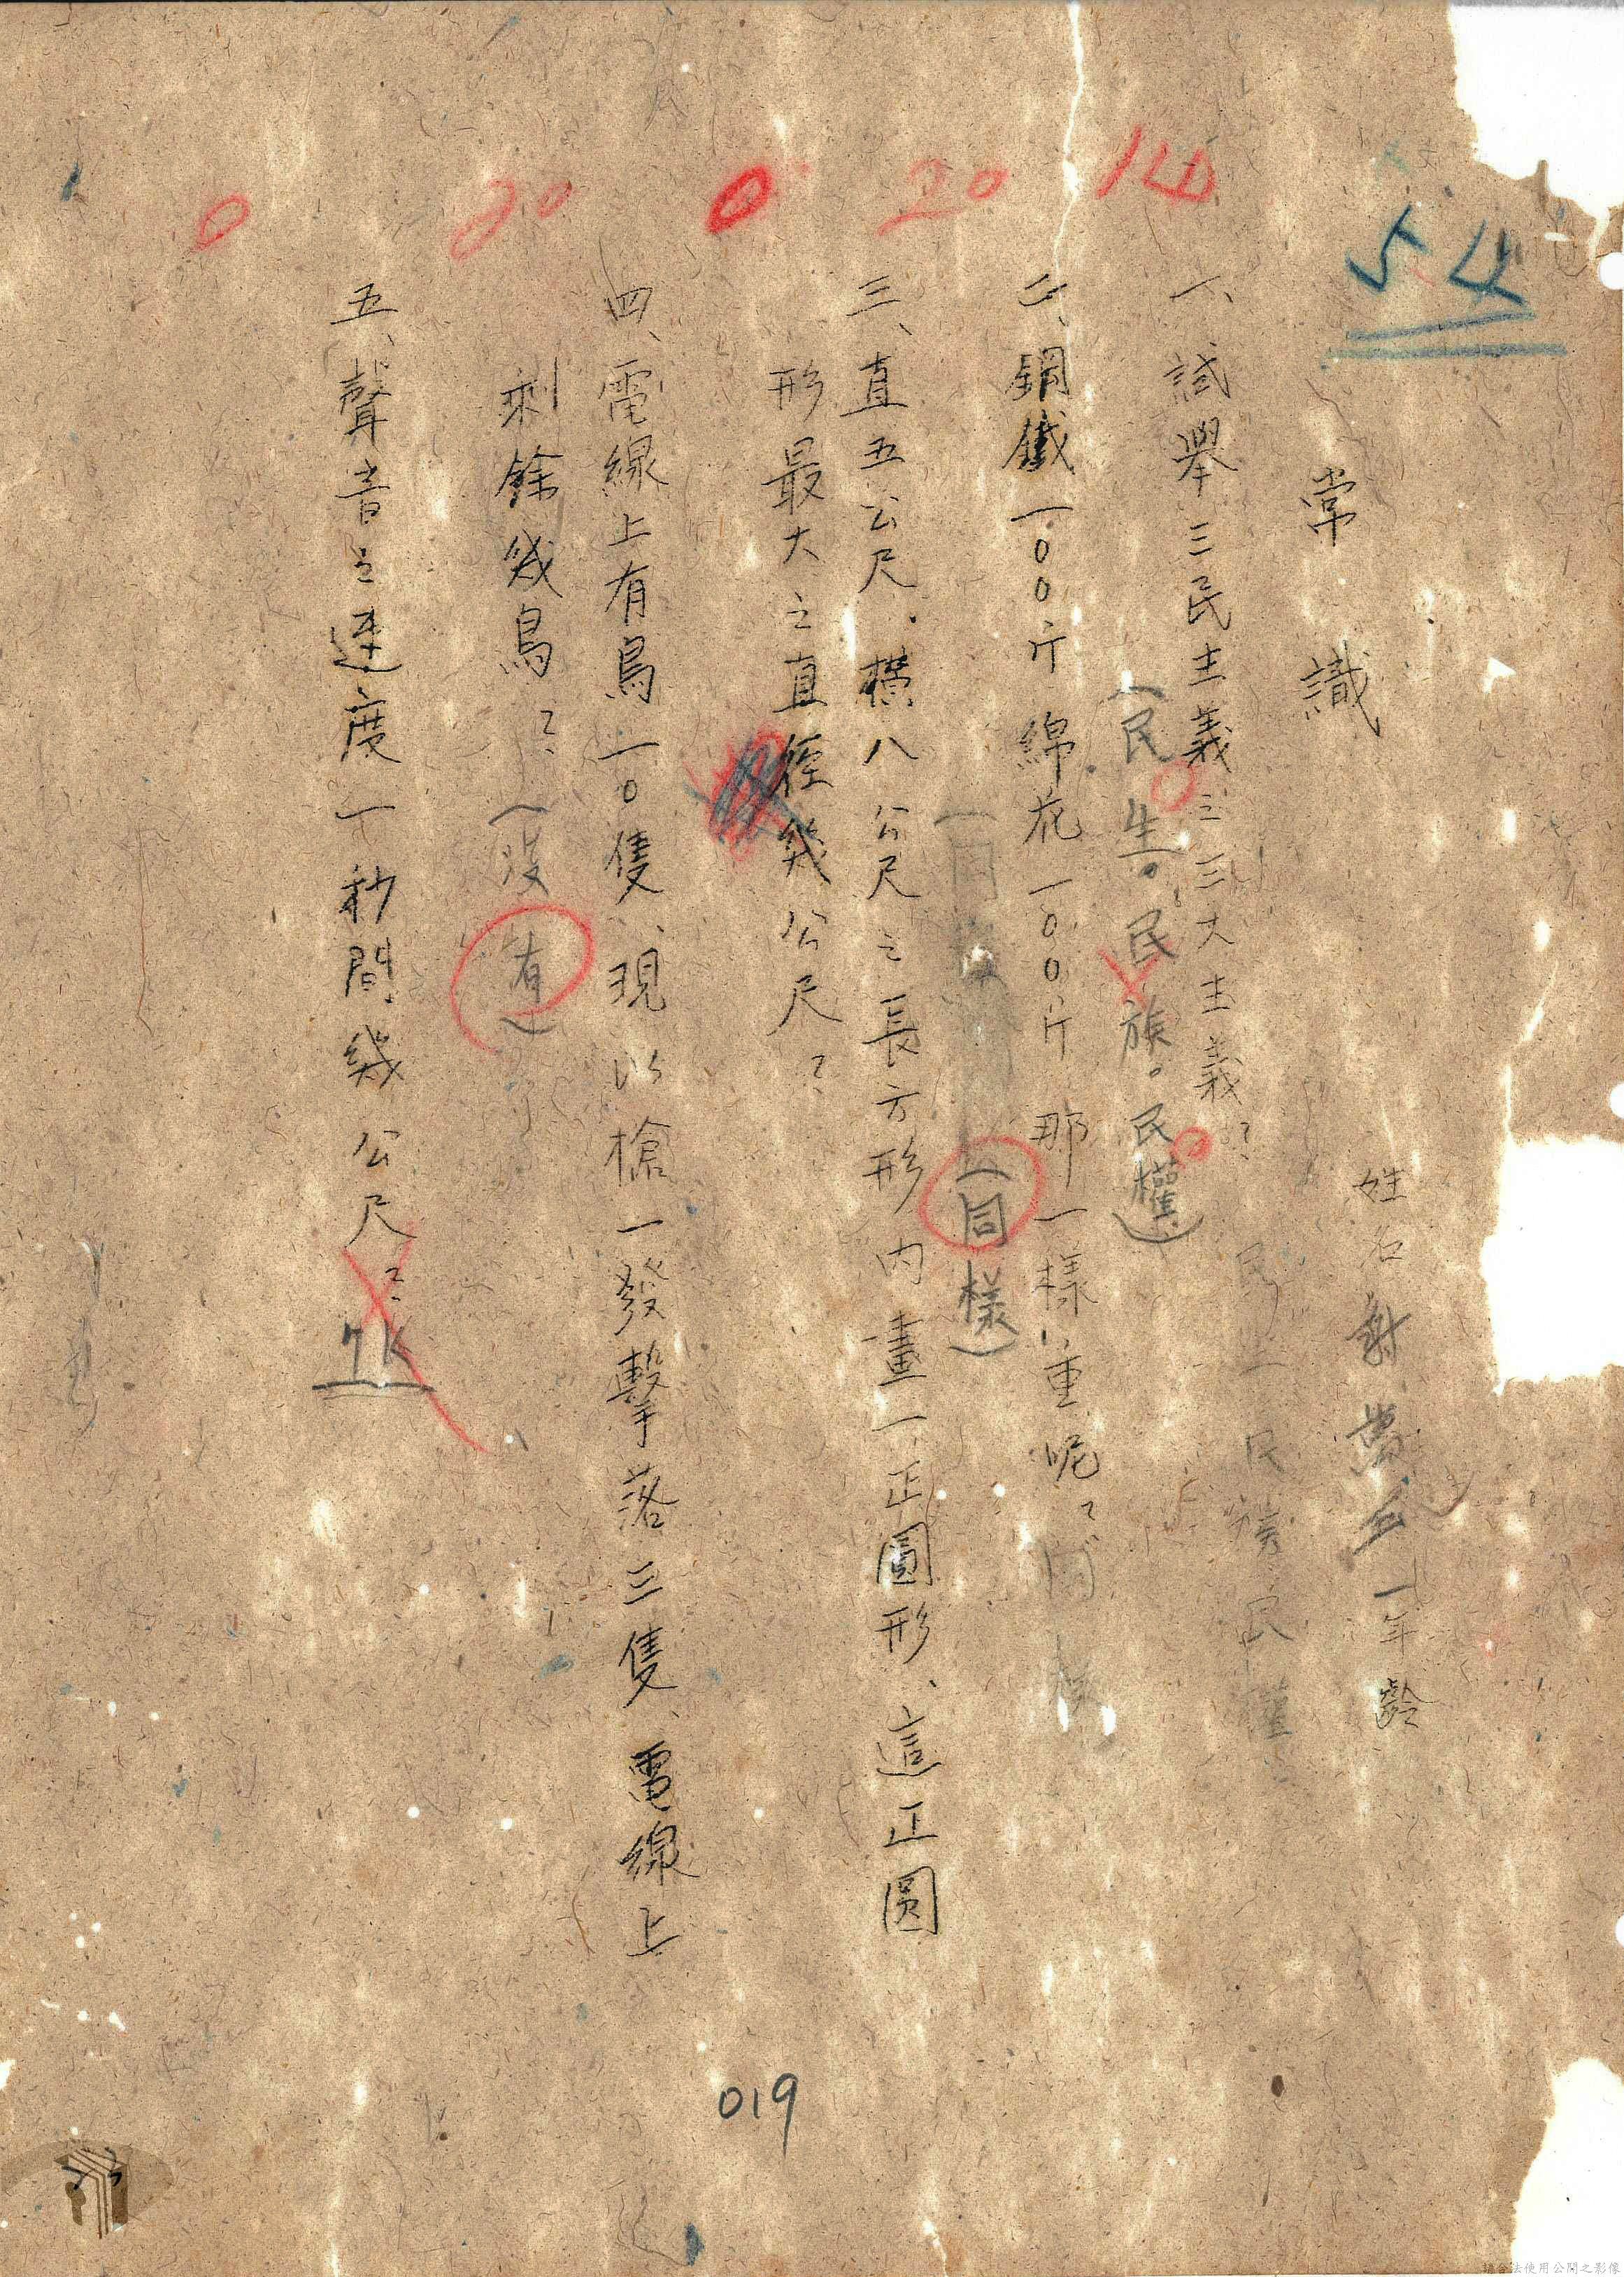 54
常識
姓名 謝萬 年齡
14
一、試舉三民主義之三大主義?
(民生。民族。民權)
民生 民族 民權
20
二、鋼鐵一00斤 綿花一00斤 那一樣重呢? 同樣
(同樣)
0
三、直五公尺、橫八公尺之長方形內畫一正圓形、這正圓
形最大之直徑幾公尺?
20
四、電線上有鳥一0隻、現以槍一發擊落三隻、電線上
剩餘幾鳥? (沒有)
0
五、聲音之速度一秒間幾公尺? 7K
019